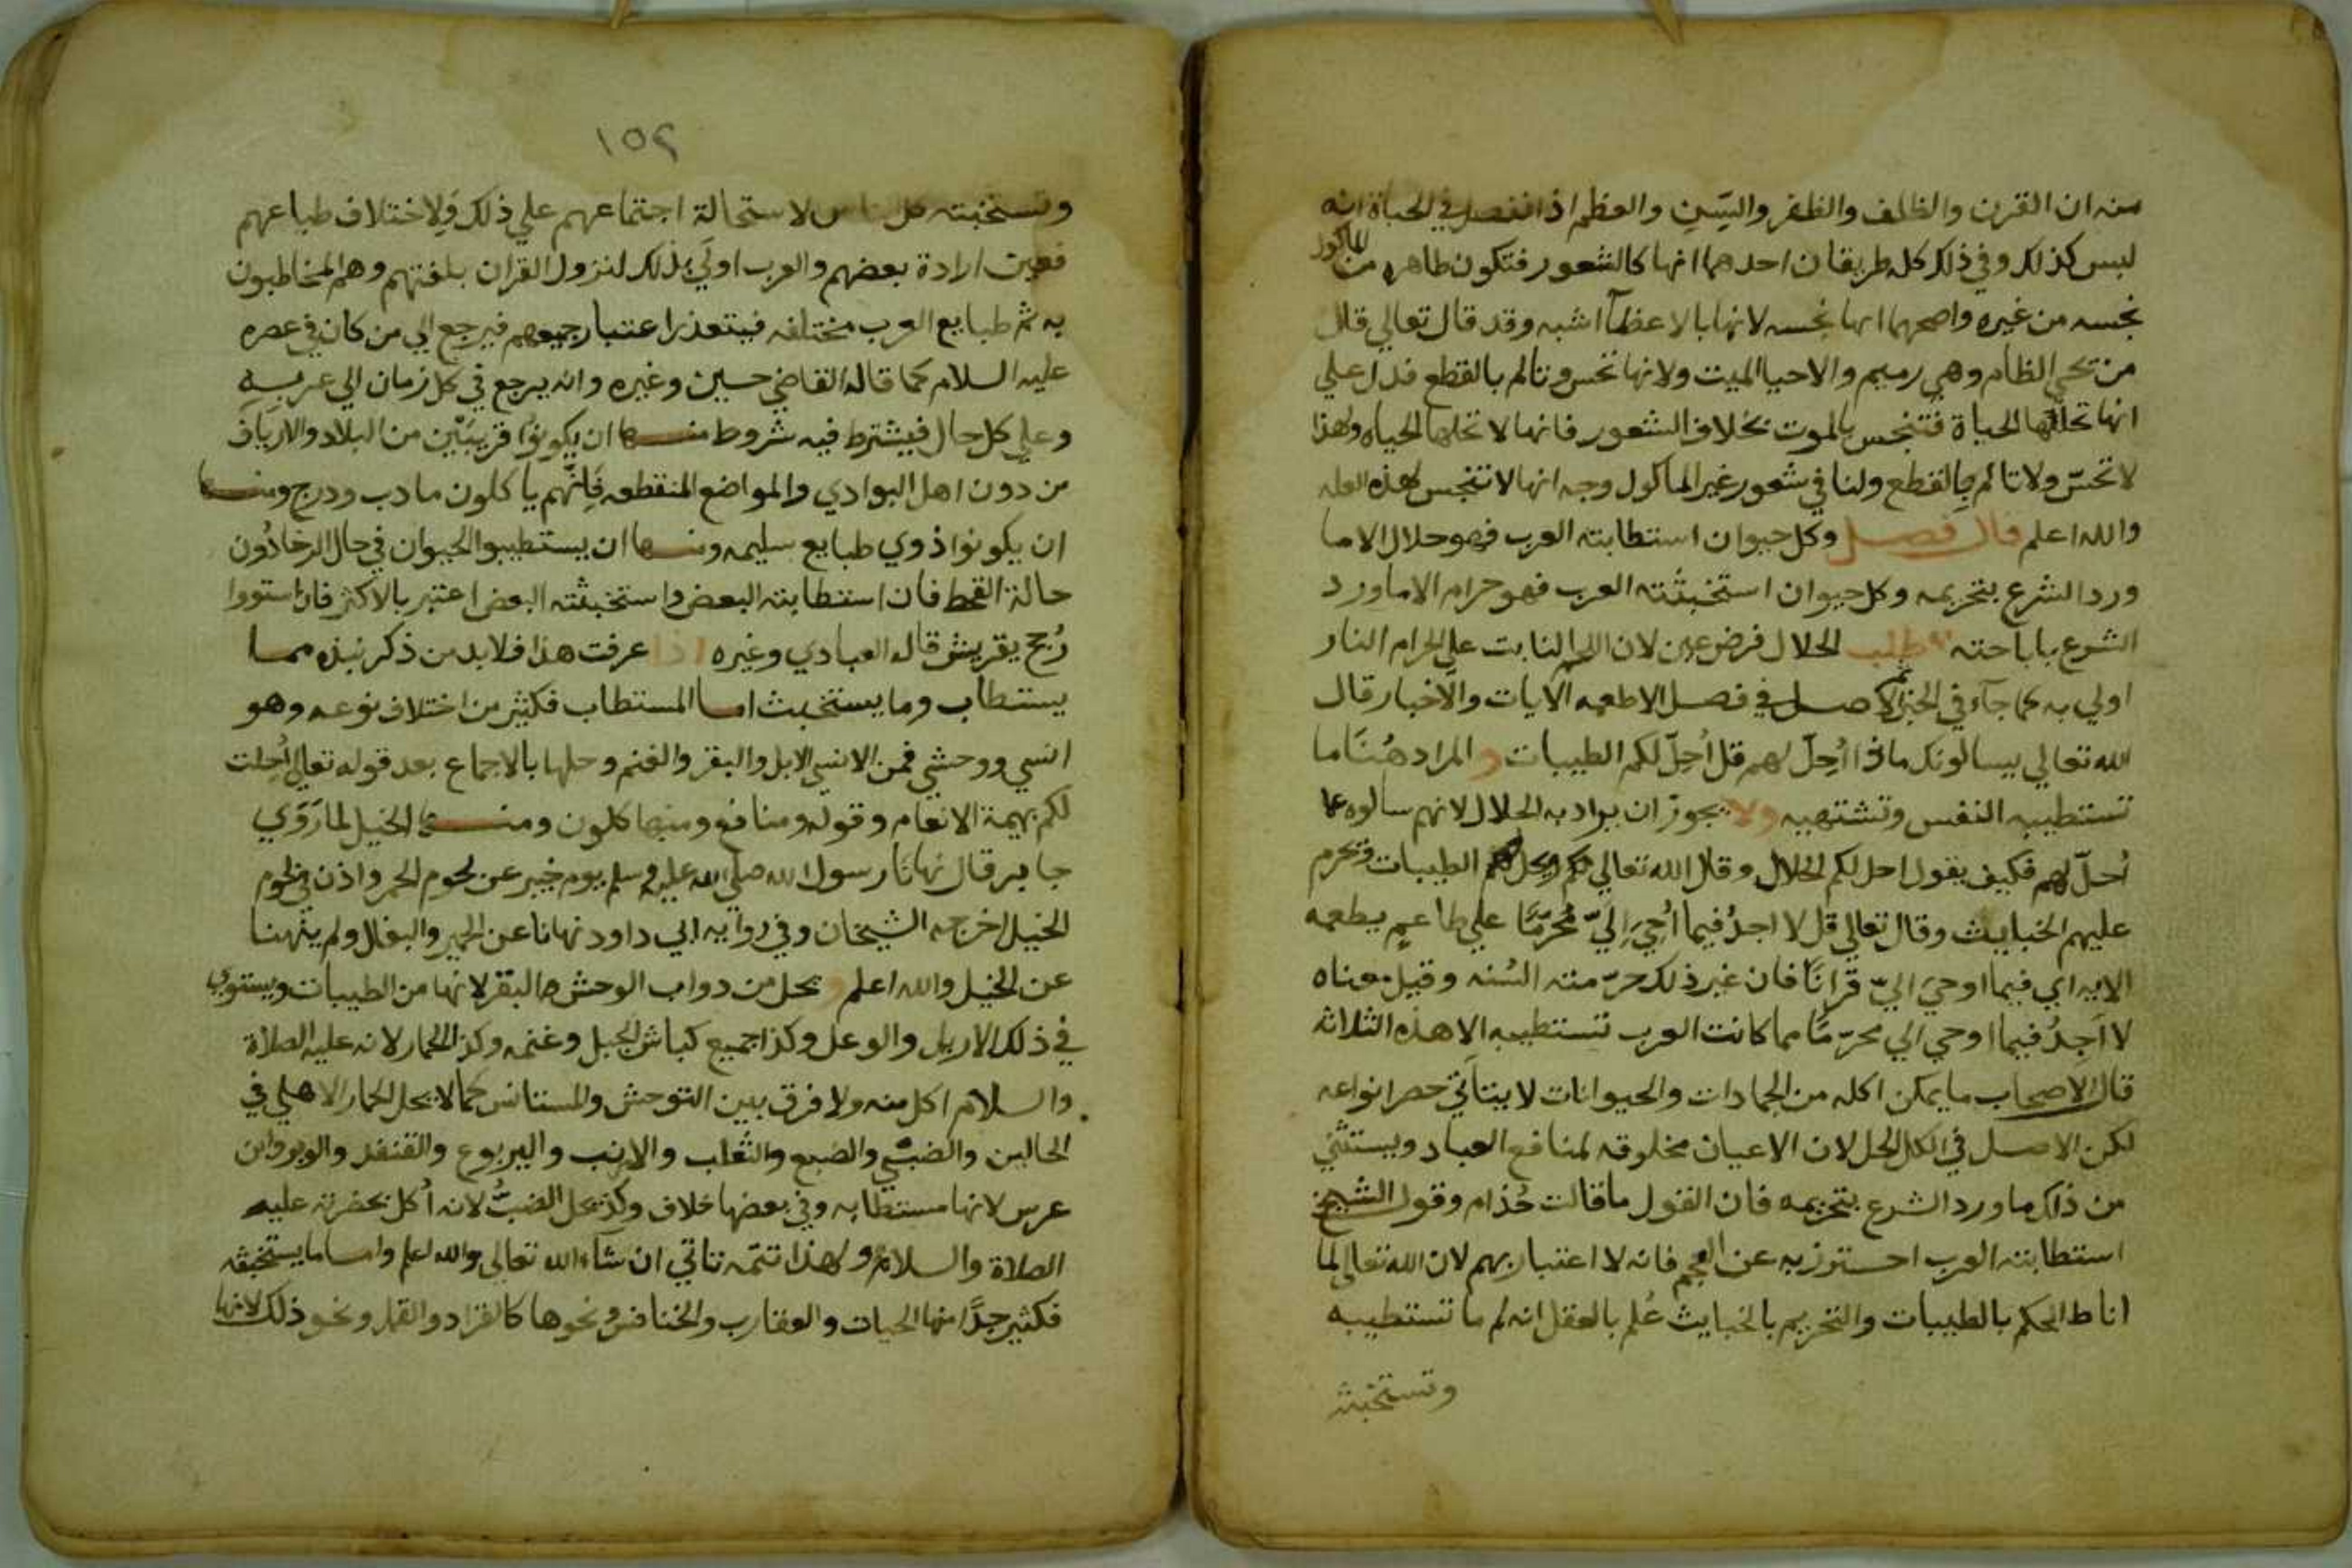 منه ان القرن والظلف والظفر والسِّن والعظم اذا انفصل في الحياة انه
ليس كذلك وفي ذلك كله طريقان احدهما انها كالشعور فتكون طاهره من الماكول
نجسه من غيره واصحهما انها نجسه لانها بالاعظآ اشبه وقد قال تعالي قال
من يحي العظام وهي رميم والاحيا الميت ولانها تحس وتالم بالقطع فدل علي
انها تحلها الحياة فتنجس بالموت بخلاف الشعور فانها لا تحلها الحياه ولهذا
لا تحسّ ولا تالم بالقطع ولنا في شعور غير الماكول وجه انها لا تنجس لهذه العله
والله اعلم قال فصل وكل حيوان استطابته العرب فهو حلال الا ما
ورد الشرع بتحريمه وكل حيوان استخبثته العرب فهو حرام الا ما ورد
الشرع باباحته طلب الحلال فرض عين لان اللحم النابت علي الحرام النار
اولي به كما جآء في الخبر والاصل في فصل الاطعمه الايات والاخبار قال
الله تعالي يسالونك ماذا اُحِلّ لهم قل اُحِلّ لكم الطيبات والمراد هُنَا ما
تستطيبه النفس وتشتهيه ولا يجوز ان يراد به الحلال لانهم سالوه عما
اُحلّ لهم فكيف يقول احل لكم الحلال وقال الله تعالي ويحل لهم الطيبات ويحرم
عليهم الخبايث وقال تعالي قل لا اجدُ فيما اُحِيَ اِليّ مُحَرّمًا علي طاعمٍ يطعمه
الايه اي فيما اوحيَ اليّ قرانًا فان غير ذلك حرّمته السُنه وقيل معناه
لا اَجِدُ فيما اوحي الي محرّمًا مما كانت العرب تستطيبه الا هذه الثلاثه
قال الاصحاب ما يمكن اكله من الجمادات والحيوانات لا يتاتي حصر انواعه
لكن الاصل في الكل الحل لان الاعيان مخلوقه لمنافع العباد ويستثني
من ذلك ما ورد الشرع بتحريمه فان القول ما قالت حُذام وقول الشيخ
استطابته العرب احترز به عن العجم فانه لا اعتبار بهم لان الله تعالي لما
اناط الحكم بالطيبات والتحريم بالخبايث عُلم بالعقل انه لم ما تستطيبه
وتستخبثه
١٥٢
وتستخبثه كل الناس لاستحالة اجتماعهم علي ذلك وَلاختلاف طباعهم
فعين ارادة بعضهم والعرب اولَي بذلك لنزول القران بلغتهم وهم المخاطبون
به ثم طبايع العرب مختلفه فيتعذر اعتبار جميعهم فيرجع الي من كان في عصره
عليه السلام كما قاله القاضي حسين وغيره وانه يرجع في كل زمان الي عربيه
وعلي كل حال فيشترط فيه شروط منها ان يكونوُا قريبَيّن من البلاد والاريَاف
من دون اهل البوادي والمواضع المنقطعه فَاِنّهم ياكلون ما دب ودرج ومنها
ان يكونوا ذوي طبايع سليمه ومنها ان يستطيبوا الحيوان في حال الرخا دُون
حالة القحط فان استطابته البعض واستخبثته البعض اعتبر بالاكثر فان استووا
رُجح بقريش قاله العبادي وغيره اذا عرفت هذا فلا بد من ذكر نبذه مما
يستطاب وما يستخبث اما المستطاب فكثير من اختلاف نوعه وهو
انسي ووحشي فمن الانسي الابل والبقر والغنم وحلها بالاجماع بعد قوله تعالي اُحلت
لكم بهيمة الانعام وقوله ومنافع ومنها كلون ومنها الخيل لما رَوَي
جابر قال نهانا رسول الله صلي الله عليه وسلم يوم خيبر عن لحوم الحمر واذن في لحوم
الخيل اخرجه الشيخان وفي روايه ابي داود نهانا عن الحمير والبغال ولم ينهنا
عن الخيل والله اعلم ويحل من دواب الوحش البقر لانها من الطيبات ويستوي
في ذلك الاريل والوعل وكذا جميع كباش الجبل وغنمه وكذا الحمار لانه عليه الصلاة
والسلام اكل منه ولا فرق بين التوحش والمستانس كما لا يحل الحمار الاهلي في
الحالين والضبي والضبع والثعلب والارنب واليربوع والقنفد والوبر وابن
عرس لانها مستطابه وفي بعضها خلاف وكذ يحل الضبُّ لانه اُكل بحضرته عليه
الصلاة والسلام ولهذا تتمّه تاتي ان شآء الله تعالي والله اعلم واما ما يستخبثه
فكثير جدًّا منها الحيات والعقارب والخنافس ونحوها كالقراد والقمل ونحو ذلك لانها